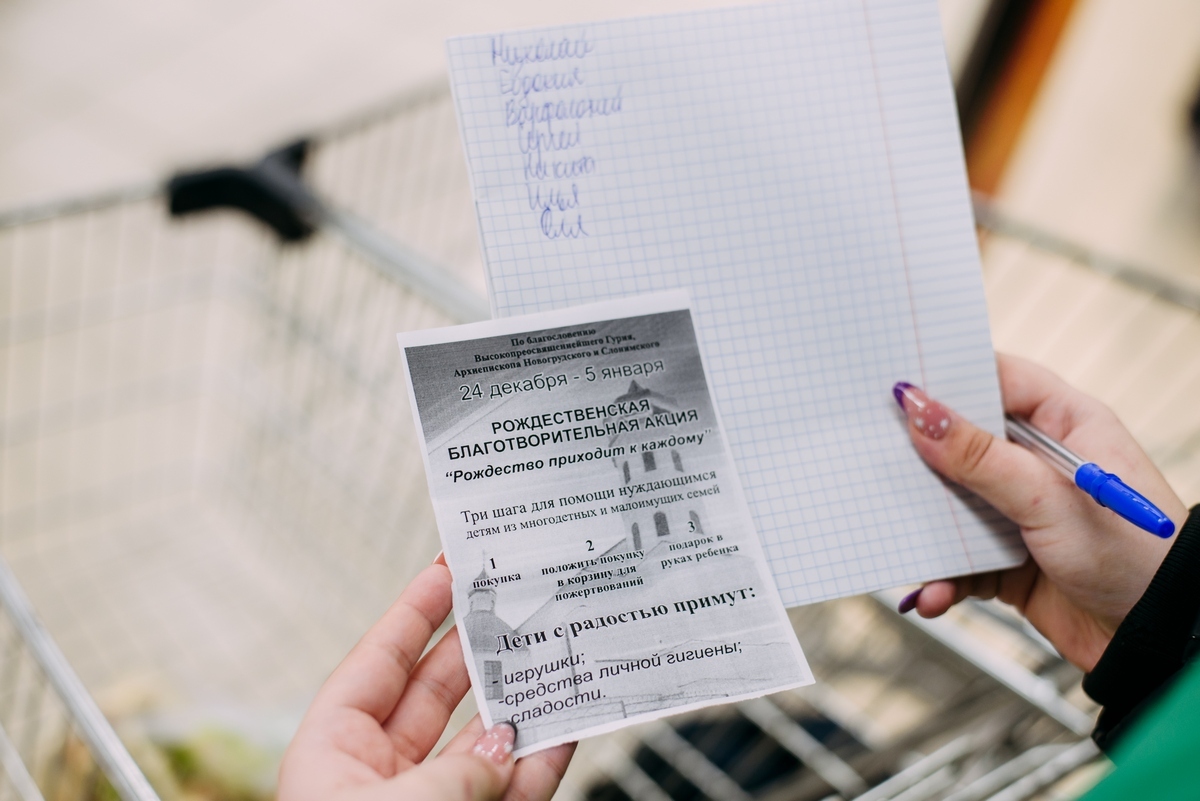 Николай
Евгения
Варфоломей
Сергей
Никита
Илья
По благословению
Высокопреосвященнейшего Гурия,
Архиепископа Новогрудского и Слонимского
24 декабря - 5 января
РОЖДЕСТВЕНСКАЯ
БЛАГОТВОРИТЕЛЬНАЯ АКЦИЯ
“Рождество приходит к каждому”
Три шага для помощи нуждающимся
детям из многодетных и малоимущих семей
1
покупка
2
положить покупку
в корзину для
пожертвований
3
подарок в
руках ребенка
Дети с радостью примут:
- игрушки;
-средства личной гигиены;
-сладости.